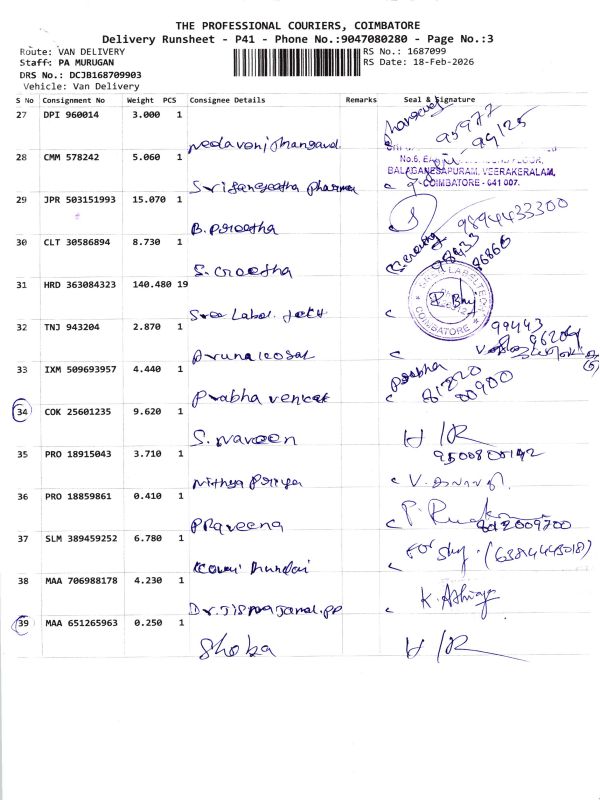 THE PROFESSIONAL COURIERS, COIMBATORE
Delivery Runsheet - P41 - Phone No.:9047080280 - Page No.:3
Route: VAN DELIVERY RS No.: 1687099
Staff: PA MURUGAN RS Date: 18-Feb-2026
DRS No.: DCJB168709903
Vehicle: Van Delivery
S No Consignment No Weight PCS Consignee Details Remarks Seal & Signature
27 DPI 960014 3.000 1
95977
99125
28 CMM 578242 5.060 1
No.6,
BALAGANESAPURAM, VEERAKERALAM,
COIMBATORE - 641 007.
Sri Sangeetha pharma
29 JPR 503151993 15.070 1
B. Preetha
9894433300
30 CLT 30586894 8.730 1
98433
86866
S. Geetha
31 HRD 363084323 140.480 19
COIMBATORE
Sree Label. Tech
32 TNJ 943204 2.870 1
99443
96209
33 IXM 509693957 4.440 1
Prabha
81220
00900
Prabha venkat
34 COK 25601235 9.620 1
S. Naveen H/R
35 PRO 18915043 3.710 1
9500800142
Nithya Priya
36 PRO 18859861 0.410 1
Praveena
8012009700
37 SLM 389459252 6.780 1
For (63814443018)
38 MAA 706988178 4.230 1
K.
39 MAA 651265963 0.250 1
Shoba H/R